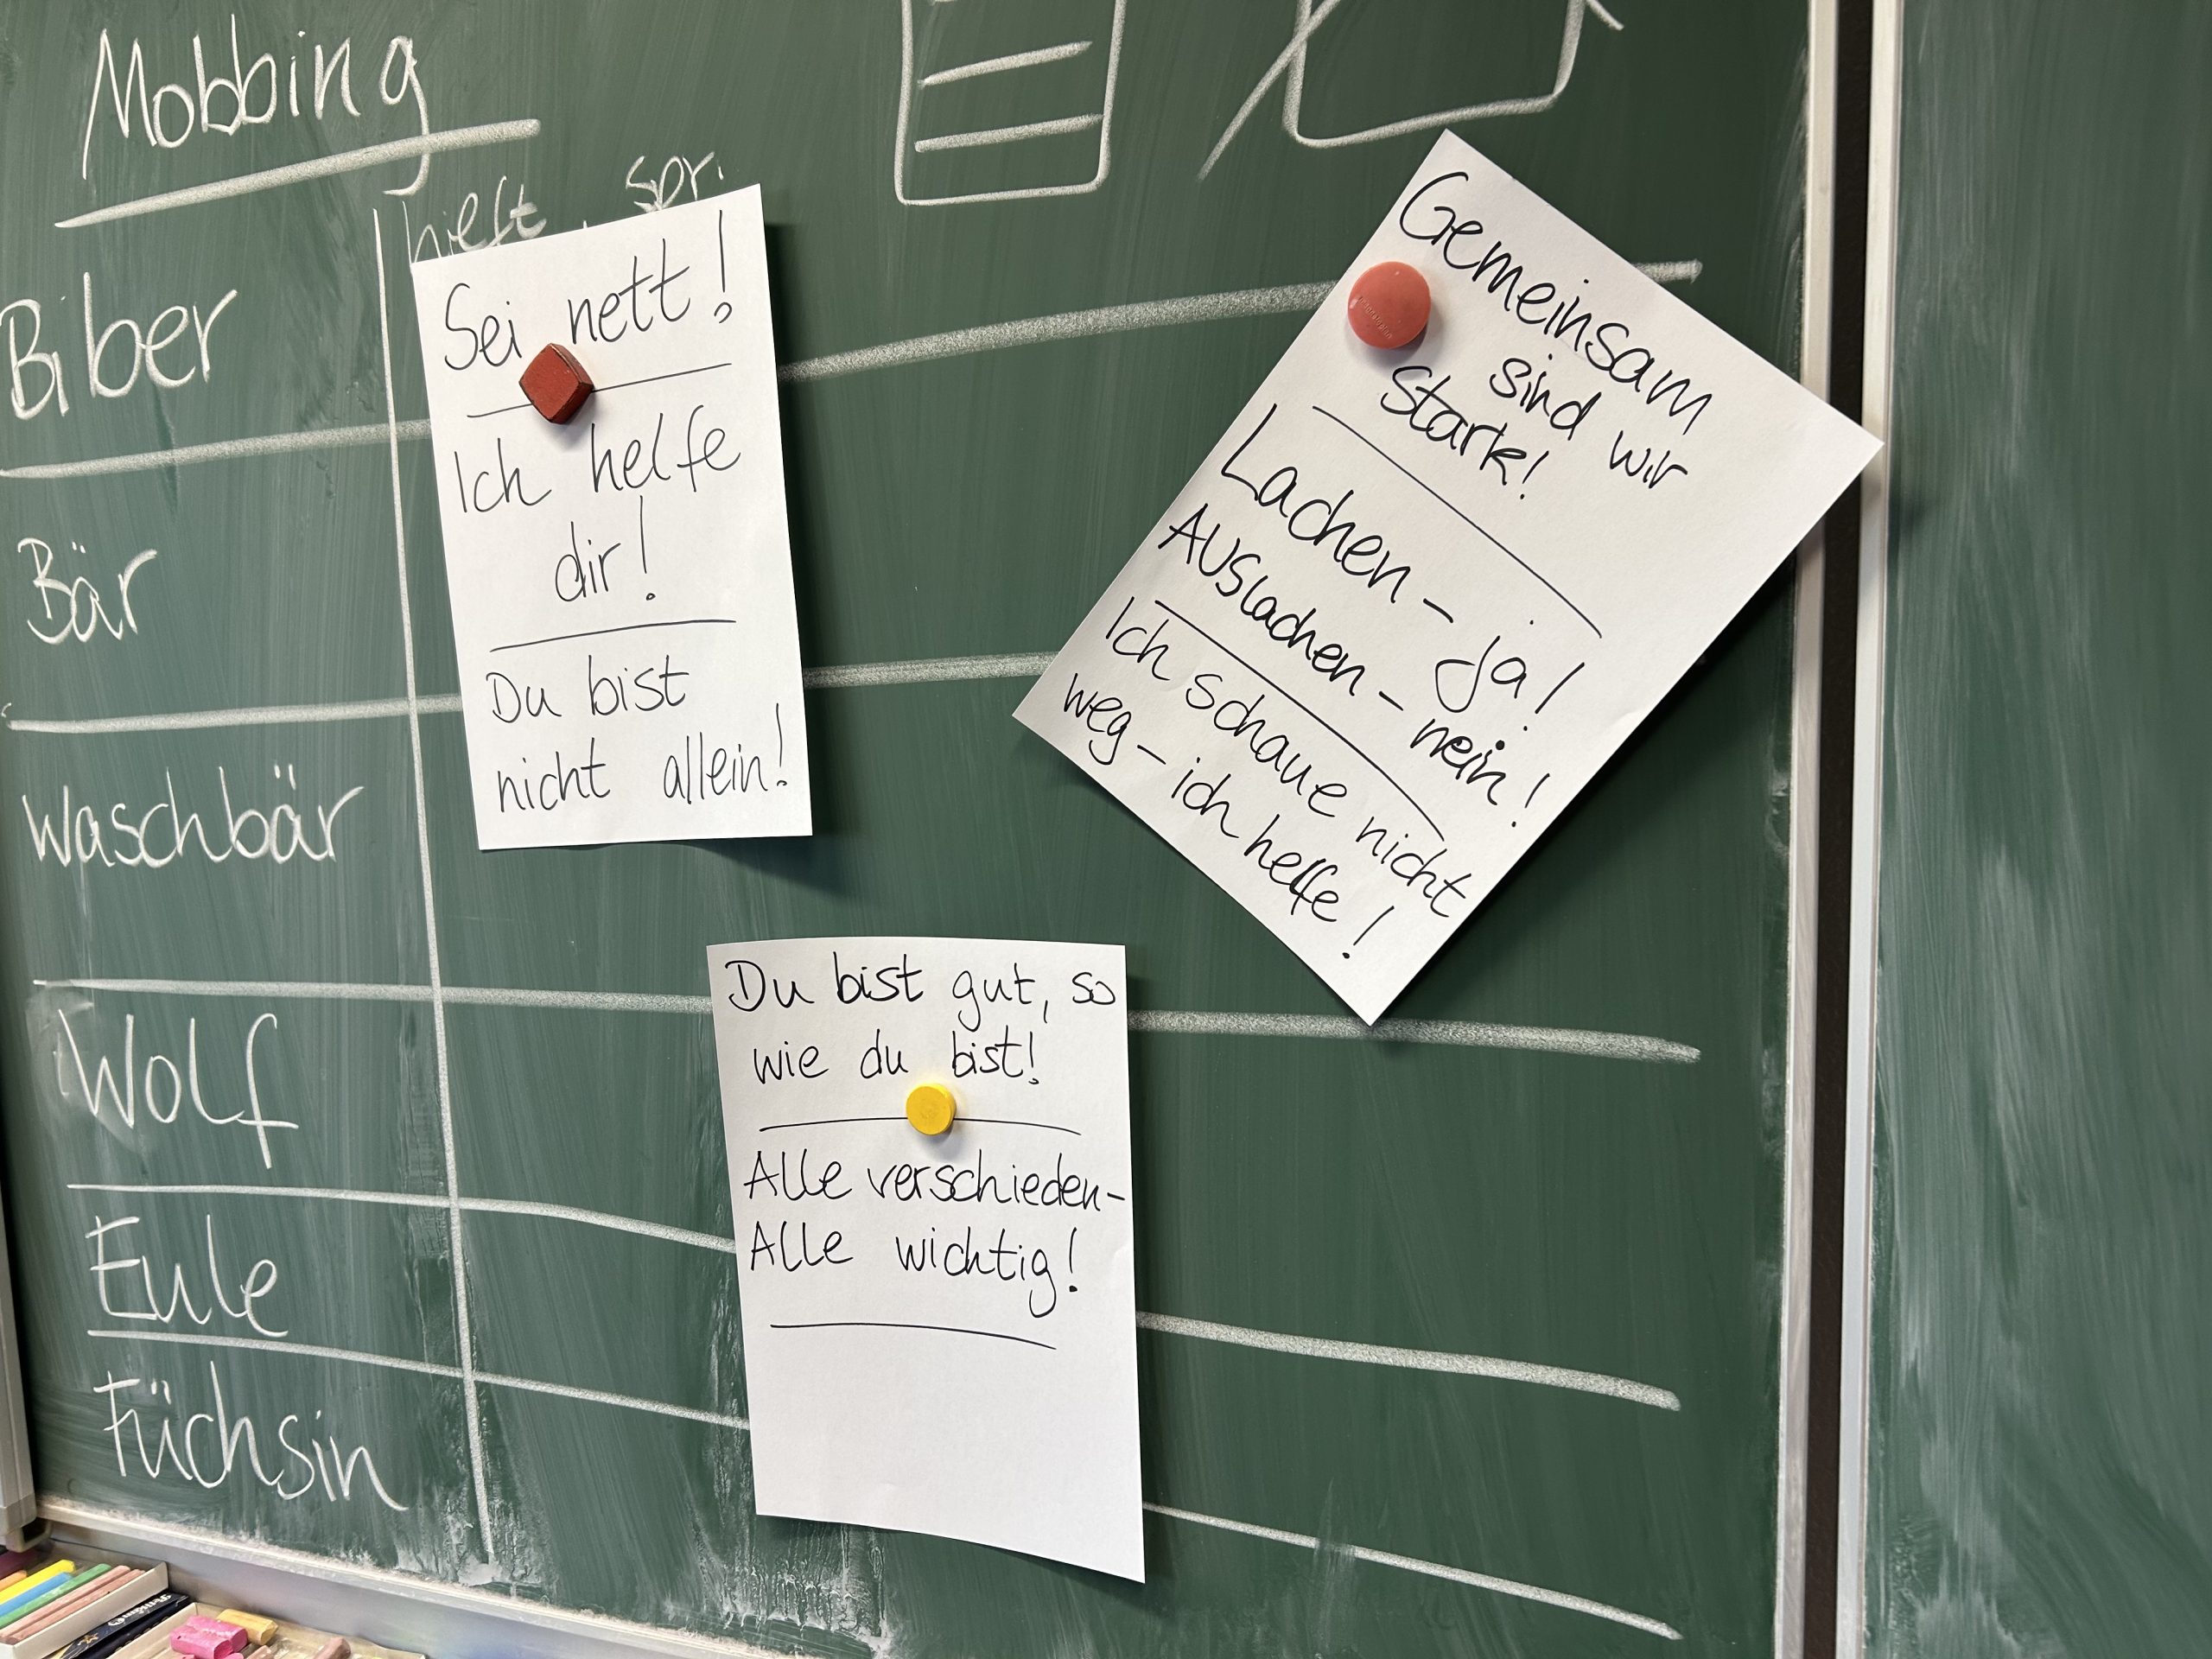 Mobbing
hilft
spr.
Biber
Bär
Waschbär
Wolf
Eule
Füchsin
Sei nett!
Ich helfe
dir!
Du bist
nicht allein!
Gemeinsam
sind wir
stark!
Lachen – ja!
Auslachen – nein!
Ich schaue nicht
weg – ich helfe!
Du bist gut, so
wie du bist!
Alle verschieden –
Alle wichtig!